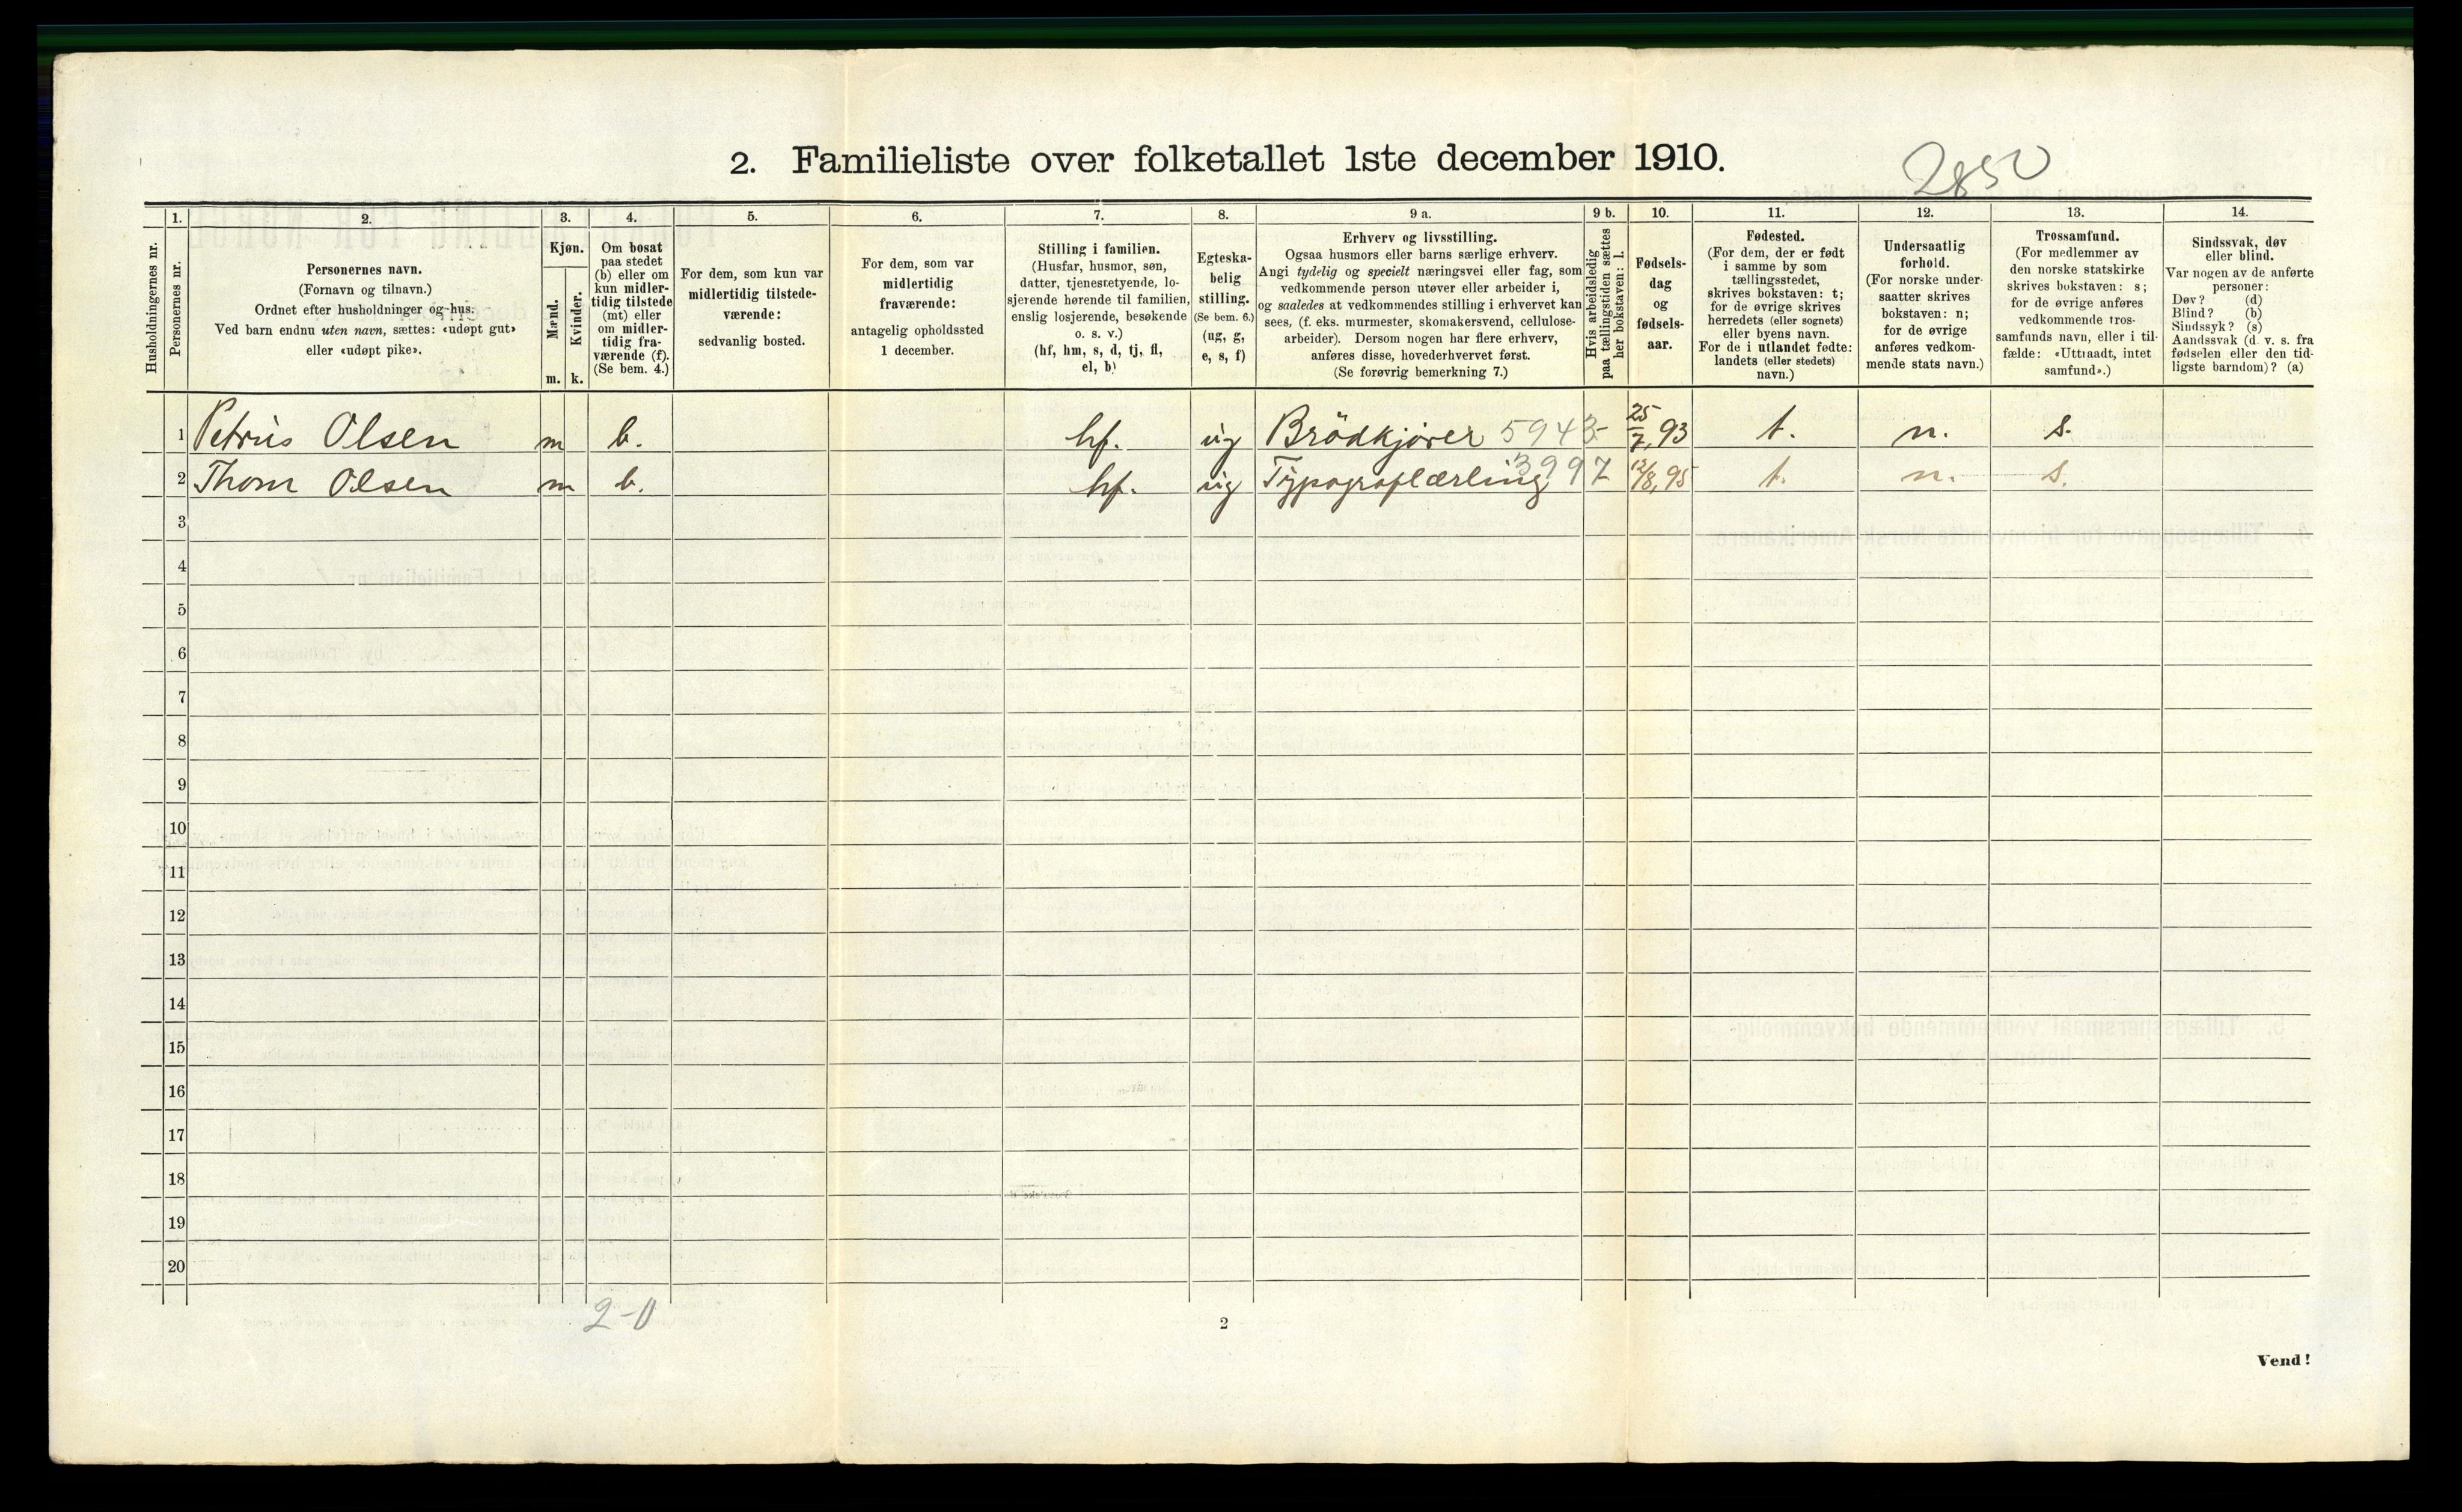 2. Familieliste over folketallet 1ste december 1910.
2850
Husholdningernes nr.
1.
Personernes nr.
2.
Personernes navn.
(Fornavn og tilnavn.)
Ordnet efter husholdninger og hus.
Ved barn endnu uten navn, sættes: «udøpt gut»
eller «udøpt pike».
3.
Kjøn.
Mænd.
Kvinder.
m. k.
4.
Om bosat
paa stedet
(b) eller om
kun midler-
tidig tilstede
(mt) eller
om midler-
tidig fra-
værende (f).
(Se bem. 4.)
5.
For dem, som kun var
midlertidig tilstede-
værende:
sedvanlig bosted.
6.
For dem, som var
midlertidig
fraværende:
antagelig opholdssted
1 december.
7.
Stilling i familien.
(Husfar, husmor, søn,
datter, tjenestetyende, lo-
sjerende hørende til familien,
enslig losjerende, besøkende
o. s. v.)
(hf, hm, s, d, tj, fl,
el, b)
8.
Egteska-
belig
stilling.
(Se bem. 6.)
(ug, g,
e, s, f)
9 a.
Erhverv og livsstilling.
Ogsaa husmors eller barns særlige erhverv.
Angi tydelig og specielt næringsvei eller fag, som
vedkommende person utøver eller arbeider i,
og saaledes at vedkommendes stilling i erhvervet kan
sees, (f. eks. murmester, skomakersvend, cellulose-
arbeider). Dersom nogen har flere erhverv,
anføres disse, hovederhvervet først.
(Se forøvrig bemerkning 7.)
9 b.
Hvis arbeidsledig
paa tællingstiden sættes
her bokstaven: l.
10.
Fødsels-
dag
og
fødsels-
aar.
11.
Fødested.
(For dem, der er født
i samme by som
tællingsstedet,
skrives bokstaven: t;
for de øvrige skrives
herredets (eller sognets)
eller byens navn.
For de i utlandet fødte:
landets (eller stedets)
navn.)
12.
Undersaatlig
forhold.
(For norske under-
saatter skrives
bokstaven: n;
for de øvrige
anføres vedkom-
mende stats navn.)
13.
Trossamfund.
(For medlemmer av
den norske statskirke
skrives bokstaven: s;
for de øvrige anføres
vedkommende tros-
samfunds navn, eller i til-
fælde: «Uttraadt, intet
samfund».)
14.
Sindssvak, døv
eller blind.
Var nogen av de anførte
personer:
Døv? (d)
Blind? (b)
Sindssyk? (s)
Aandssvak (d. v. s. fra
fødselen eller den tid-
ligste barndom)? (a)
1 Petrus Olsen m b. hf. ug Brödkjörer 5943- 25/7, 93 t. n. s.
2 Thom Olsen m b. hf. ug Typograflærling 3997 12/8, 95 t. n. s.
3
4
5
6
7
8
9
10
11
12
13
14
15
16
17
18
19
20
2-0
2
Vend!